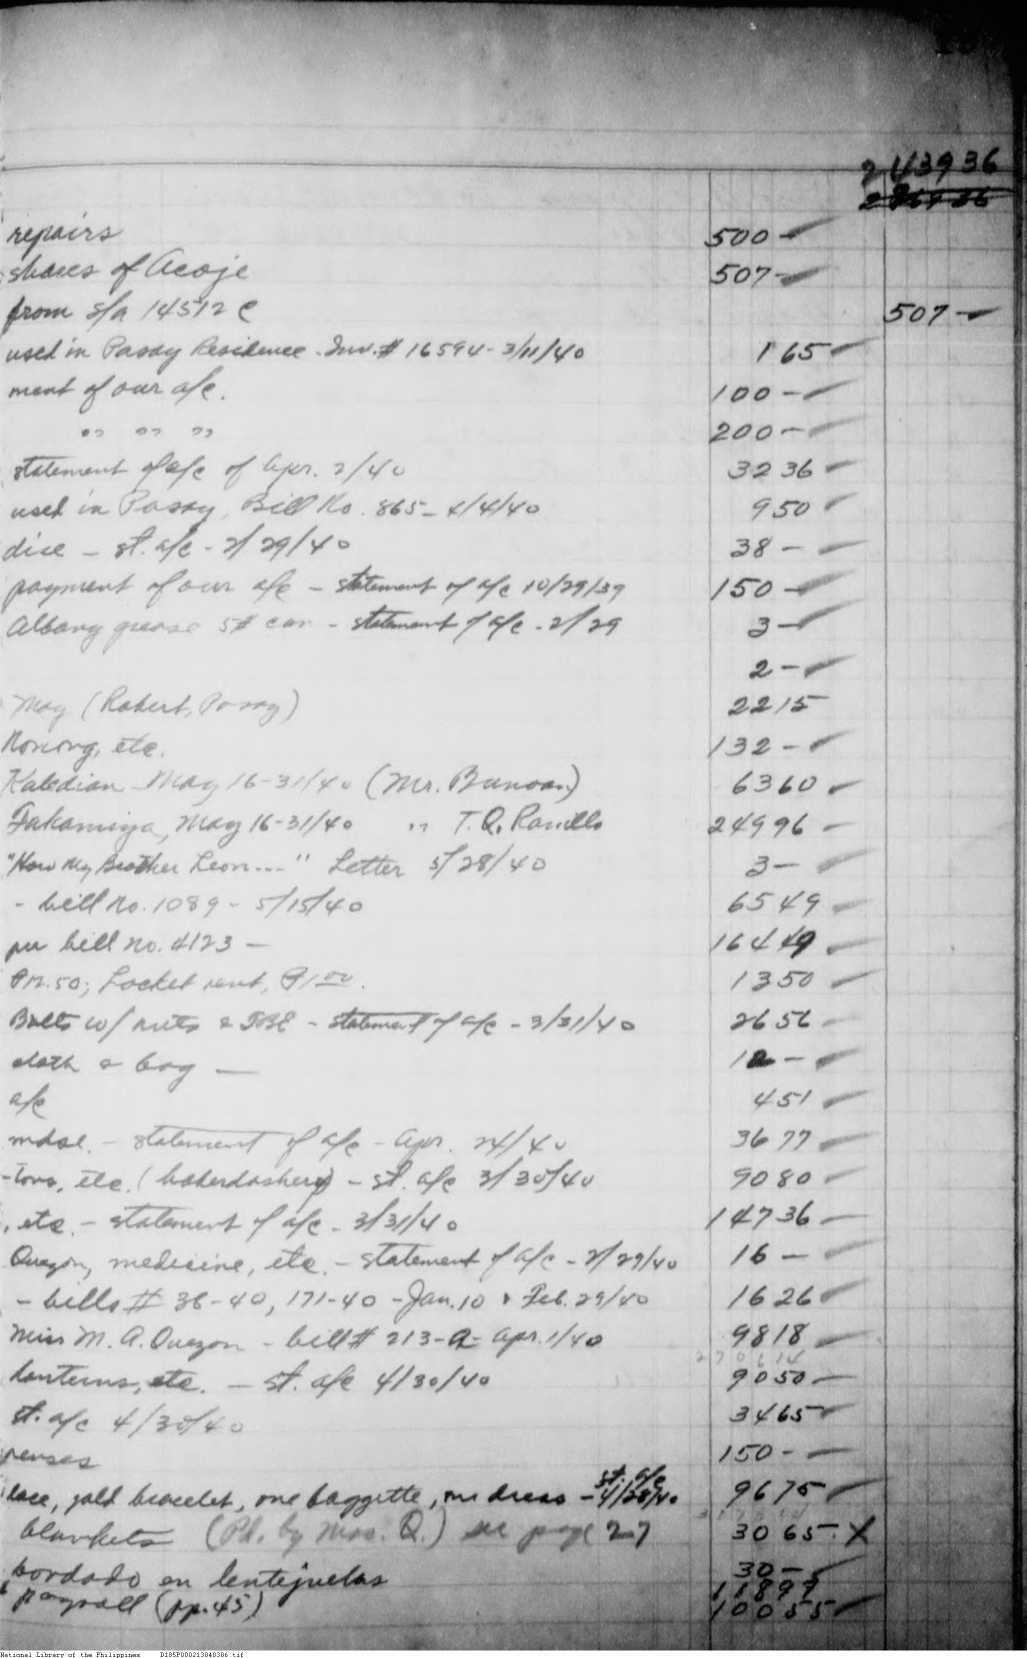 2 439 36
repairs 500 -
shares of Acoje 507 -
from s/a 14512 C 507 -
used in Pasay Residence - Inv. # 16594 - 3/11/40 1 65
ment of our a/c. 100 -
" " " 200 -
statement of a/c of Apr. 2/40 32 36
used in Pasay, Bill No. 865 - 4/4/40 9 50
dise - st. a/c - 2/29/40 38 -
payment of our a/c - statement of a/c 10/29/39 150 -
Albany grease 5# can - statement of a/c - 2/29 3 -
2 -
May (Robert, Pasay) 22 15
etc. 132 -
May 16-31/40 (Mr. Bunoan) 63 60
Takamiya, May 16-31/40 " T.Q. 249 96
"How My Brother Leon..." Letter 5/28/40 3 -
- bill no. 1089 - 5/15/40 65 49
per bill no. 4123 - 164 49
₱12.50; Locket rent, ₱1.00. 13 50
Bolts w/ nuts & - statement of a/c - 3/31/40 26 56
cloth & bag - 12 -
a/c 4 51
mdse. - statement of a/c - Apr. 24/40 36 77
-tons, etc. (haberdashery) - st. a/c 3/30/40 90 80
, etc. - statement of a/c - 3/31/40 147 36
Quezon, medicine, etc. - statement of a/c - 2/29/40 16 -
- bills # 38-40, 171-40 - Jan. 10 & Feb. 29/40 16 26
Miss M. A. Quezon - bill # 213-A - Apr. 1/40 98 18
2 7 0 6 14
lanterns, etc. - st. a/c 4/30/40 90 50
st. a/c 4/30/40 34 65
penses 150 -
lace, gold bracelet, one baggette, one dress - st. a/c 4/28/40 96 75
blankets (Pd. by Mrs. Q.) see page 27 30 65 X
bordado en lentejuelas 30 -
118 97
payroll (pp. 45) 100 55
National Library of the Philippines D185P000213040306.tif